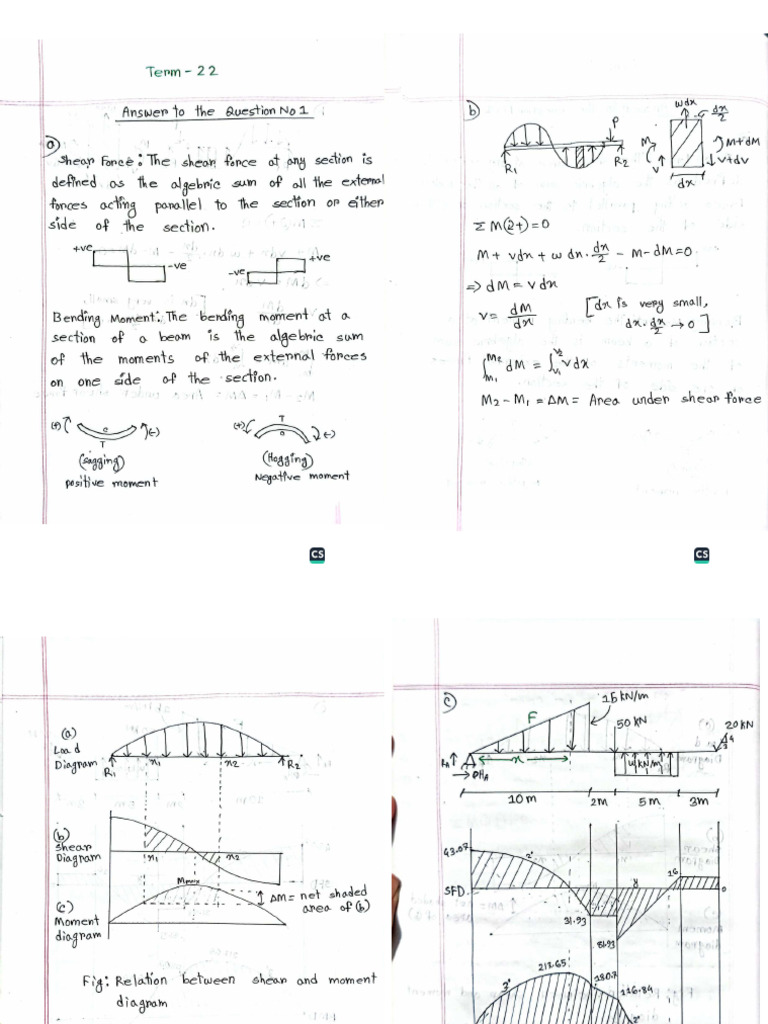 Term-22
Answer to the Question No 1
a)
Shear Force: The shear force at any section is
defined as the algebric sum of all the external
forces acting parallel to the section or either
side of the section.
+ve
-ve
-ve
+ve
Bending Moment: The bending moment at a
section of a beam is the algebric sum
of the moments of the external forces
on one side of the section.
(+) C T (-)
(Sagging)
positive moment
(+) T C (-)
(Hogging)
Negative moment
CS
b)
P
R1
R2
wdx
dx/2
M
M+dM
V
V+dV
dx
Σ M(2+)=0
M + vdx + w dx · dx/2 - M - dM = 0
⇒ dM = v dx
v = dM/dx [dx is very small,
dx·dx/2 → 0]
∫M1^M2 dM = ∫v1^v2 v dx
M2 - M1 = ΔM = Area under shear force
CS
(a)
Load
Diagram
R1
x1
x2
R2
(b)
Shear
Diagram
x1
x2
(c)
Moment
diagram
Mmax
ΔM = net shaded
area of (b)
Fig: Relation between shear and moment
diagram
c)
15 kN/m
F
50 kN
20 kN
4
3
RA
A
x
w kN/m
10 m
2m
5 m
3m
43.07
2°
SFD.
31.93
y
16
0
81.93
212.65
3°
180.7
116.84
2°